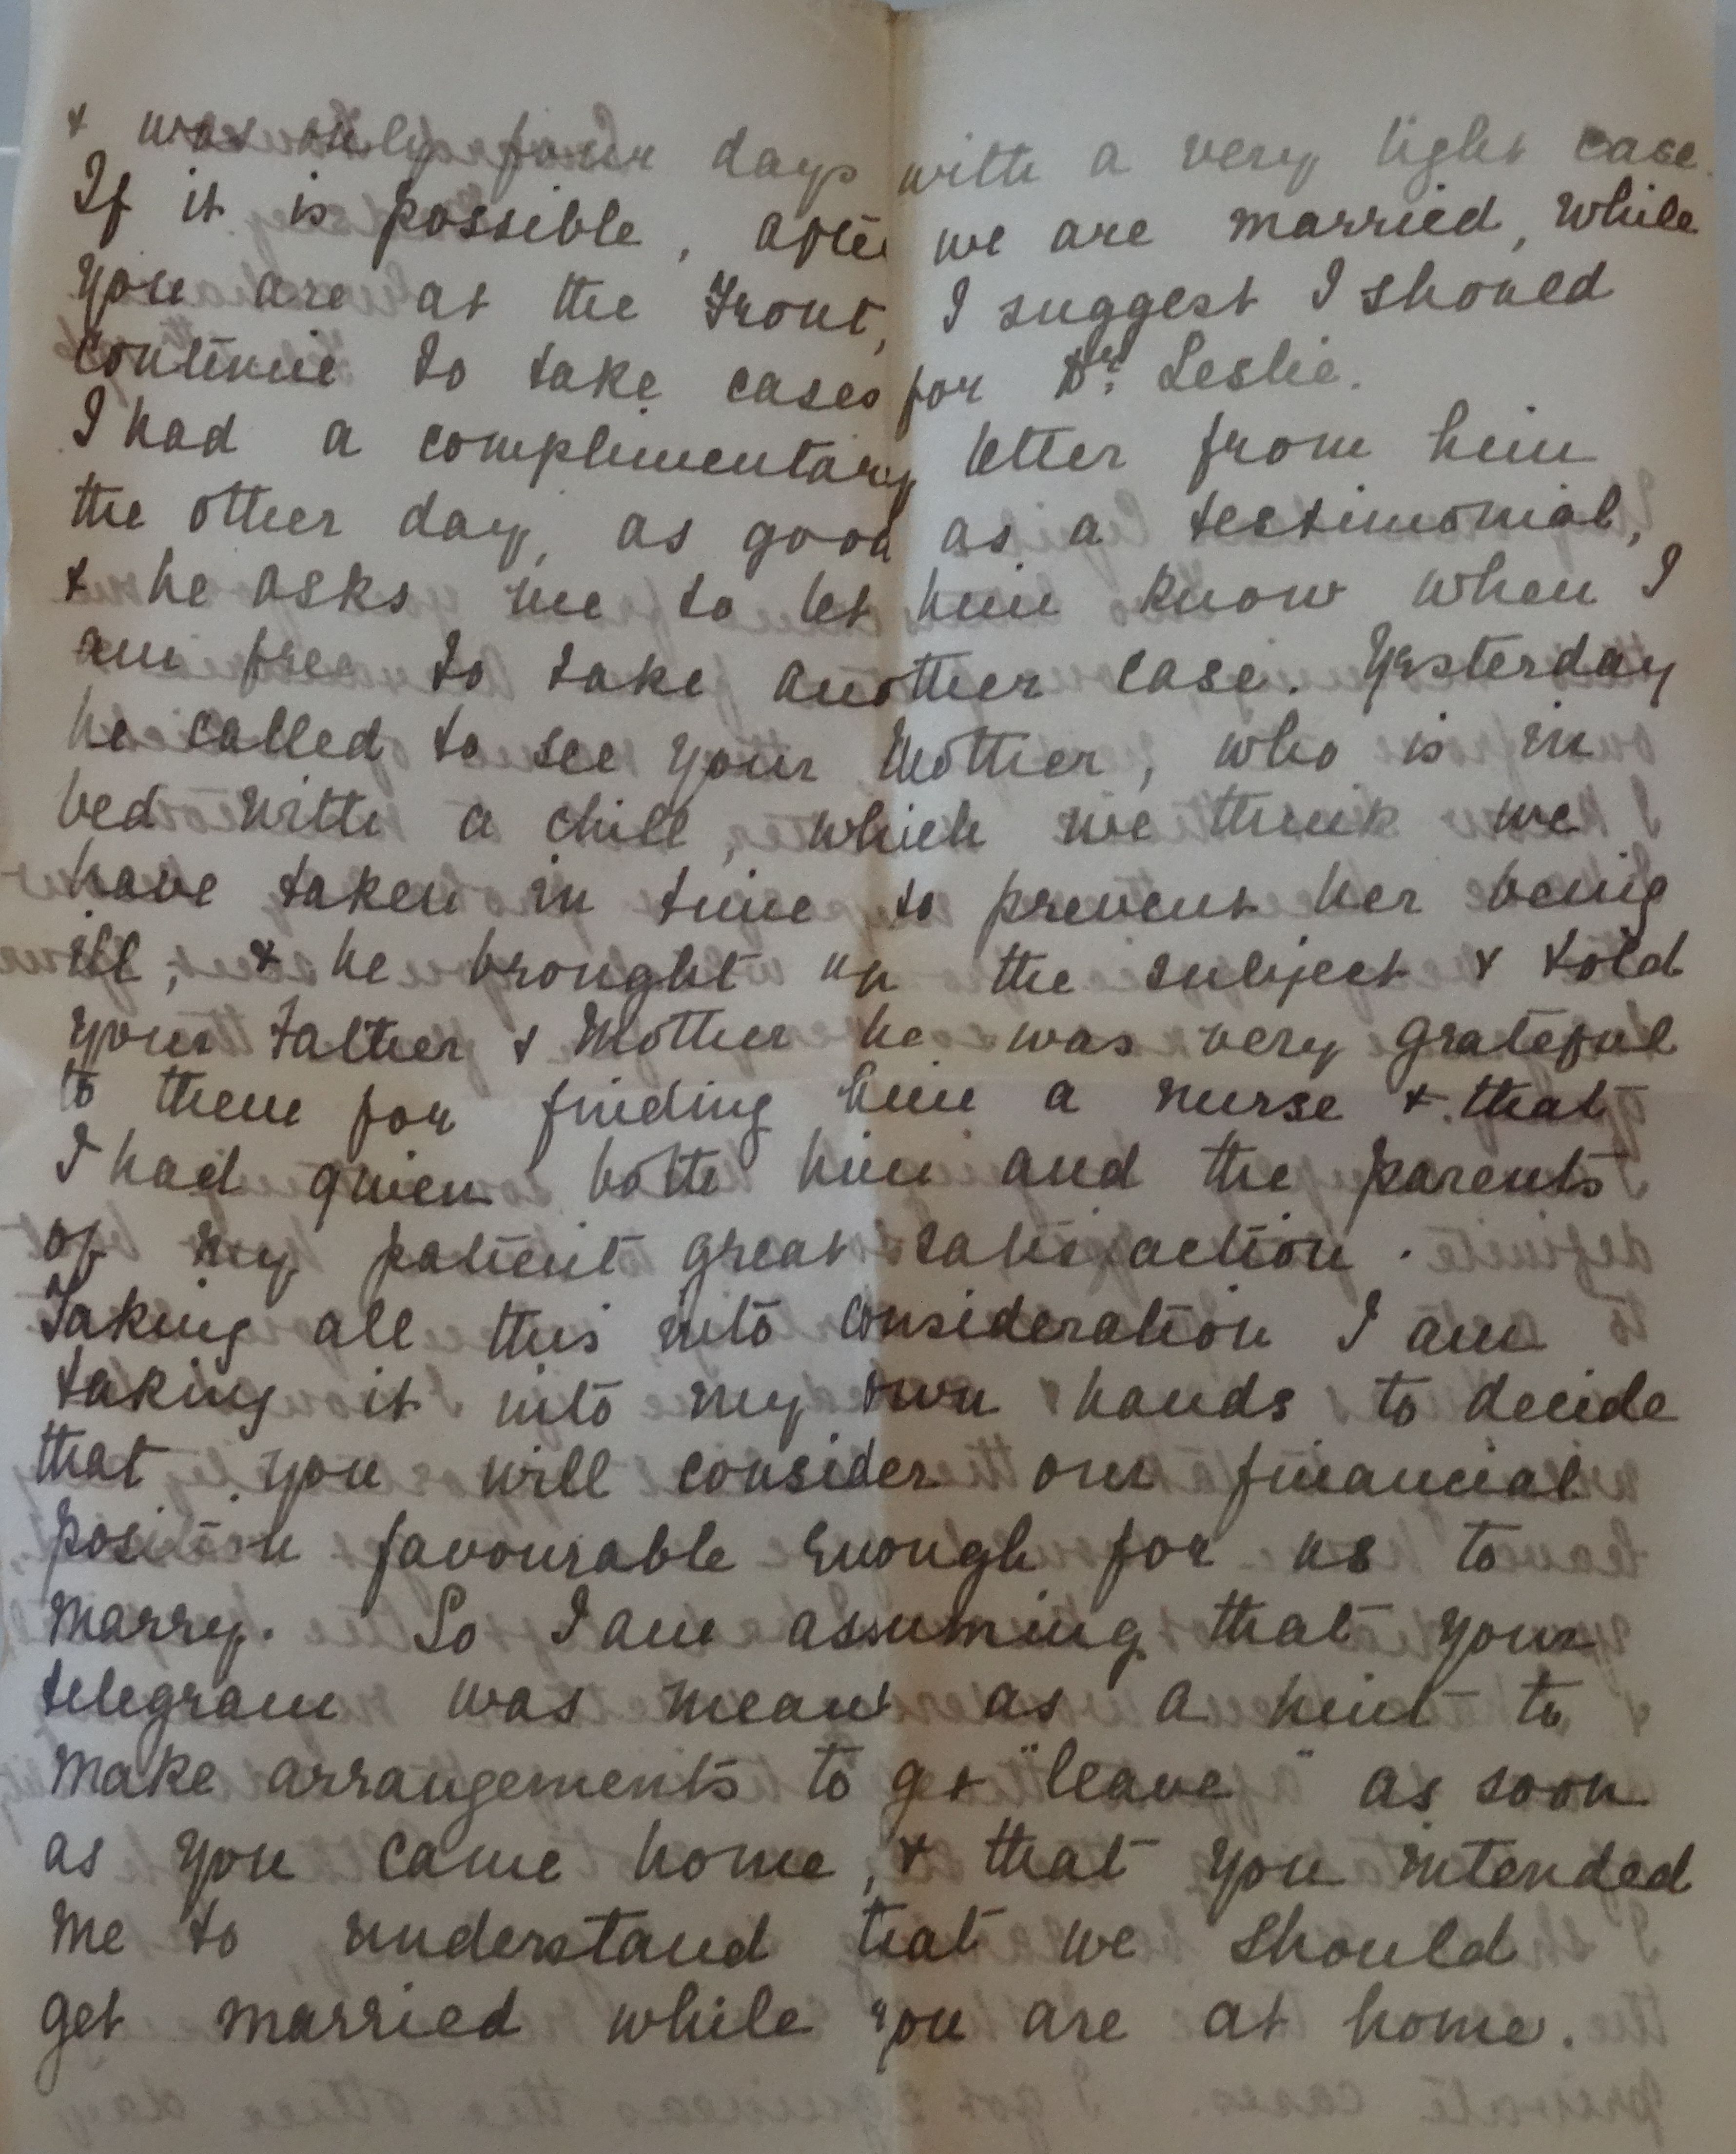 & was only four days with a very light case.
If it is possible, after we are married, while
you are at the Front, I suggest I should
continue to take cases for Dr. Leslie.
I had a complimentary letter from him
the other day, as good as a testimonial,
& he asks me to let him know when I
am free to take another case. Yesterday
he called to see your Mother, who is in
bed with a chill, which we think we
have taken in time to prevent her being
ill, & he brought up the subject & told
your Father & Mother he was very grateful
to them for finding him a nurse & that
I had given both him and the parents
of my patient great satisfaction.
Taking all this into consideration I am
taking it into my own hands to decide
that you will consider our financial
position favourable enough for us to
marry. So I am assuming that your
telegram was meant as a hint to
make arrangements to get "leave" as soon
as you came home, & that you intended
me to understand that we should
get married while you are at home.